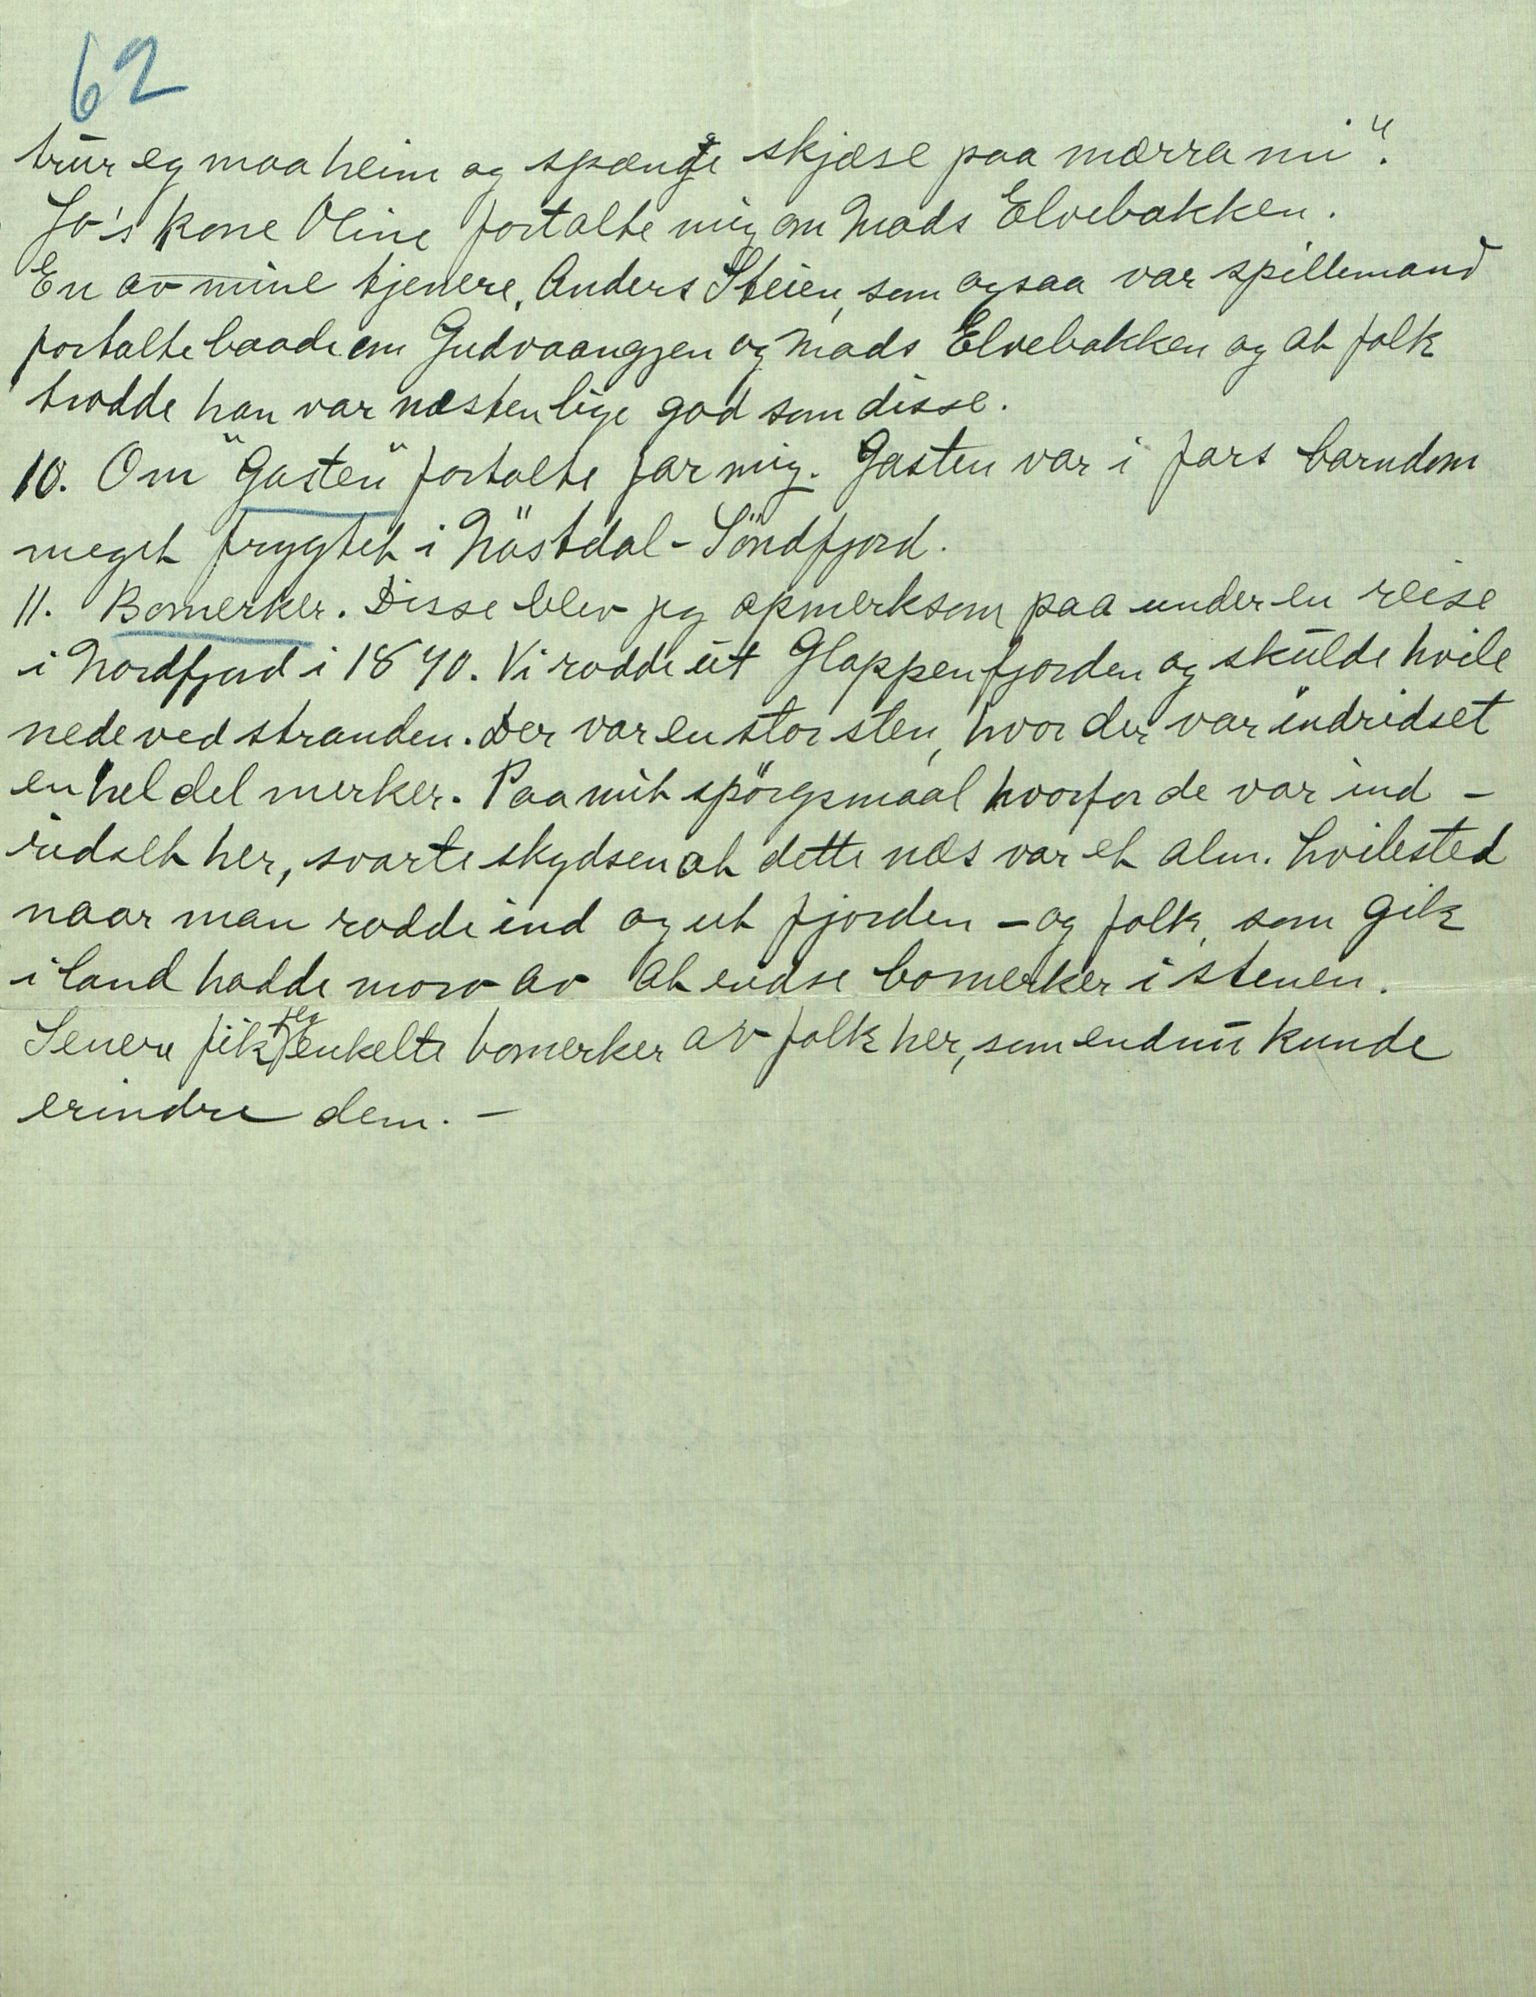 62
trur eg maa heim og spænge skjæse paa mærra mi".
Jo's kone Oline fortalte mig om Mads Elvebakken.
En av mine tjenere, Anders Steien, som ogsaa var spillemand
fortalte baade om Gudvaangjen og Mads Elvebakken og at folk
trodde han var næsten lige god som disse.
10. Om "Gasten" fortalte far mig. Gasten var i fars barndom
meget frygtet i Nöstdal-Söndfjord.
11. Bomerker. Disse blev jeg opmerksom paa under en reise
i Nordfjord i 1890. Vi rodde ut Gloppenfjorden og skulde hvile
nede ved stranden. Der var en stor sten, hvor der var indridset
en hel del merker. Paa mit spörgsmaal hvorfor de var ind-
ridset her, svarte skydsen at dette næs var et alm. hvilested
naar man rodde ind og ut fjorden - og folk, som gik
i land hadde moro av at indse bomerker i stenen.
Senere fik jeg enkelte bomerker av folk her, som endnu kunde
erindre dem. -